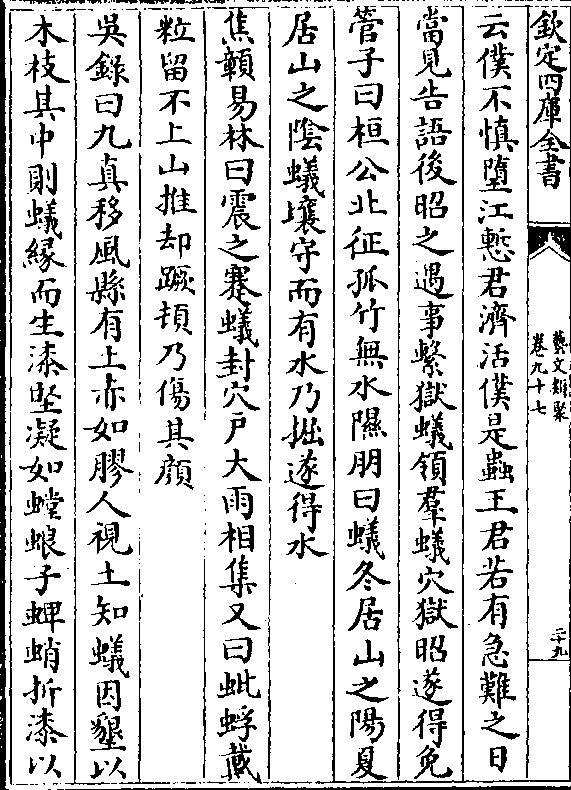 欽定四庫全書
藝文類聚
卷九十七
二十九
云僕不慎墮江慙君濟活僕是蟲王君若有急難之日
當見告語後昭之遇事繫獄蟻領羣蟻穴獄昭遂得免
管子曰桓公北征孤竹無水隰朋曰蟻冬居山之陽夏
居山之陰蟻壤守而有水乃掘遂得水
焦贛易林曰震之蹇蟻封穴戶大雨相集又曰蚍蜉戴
粒留不上山推却蹶頓乃傷其顔
吳錄曰九真移風縣有上赤如膠人視土知蟻因墾以
木枝其中則蟻緣而生漆堅凝如螳蜋子蜱蛸折漆以